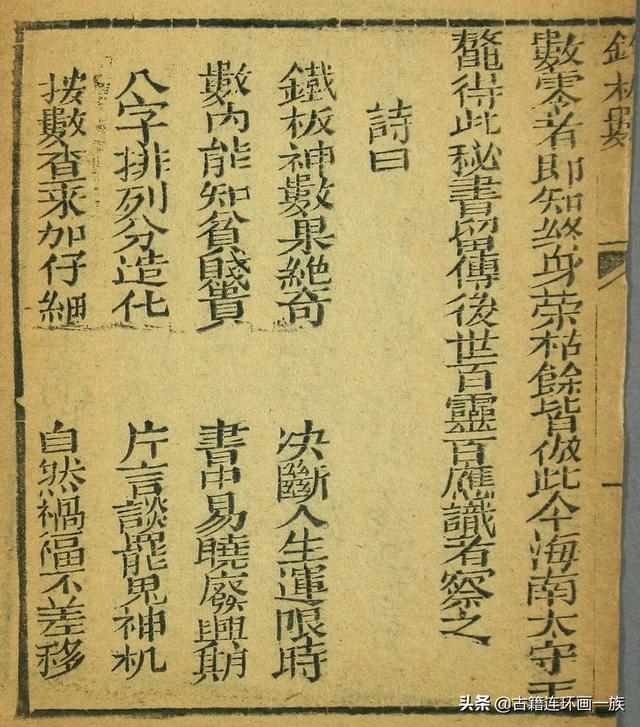 鐵板數
數零者即知終身荣枯餘皆倣此今海南太守王
鰲得此秘書留傳後世百靈百應識者察之
詩曰
鐵板神數果絶奇 决斷人生運限時
數內能知貧賤貴 書中易曉廢興期
八字排列分造化 片言談罷見神机
按數查来加仔細 自然禍福不差移
头条 @古籍连环画一族